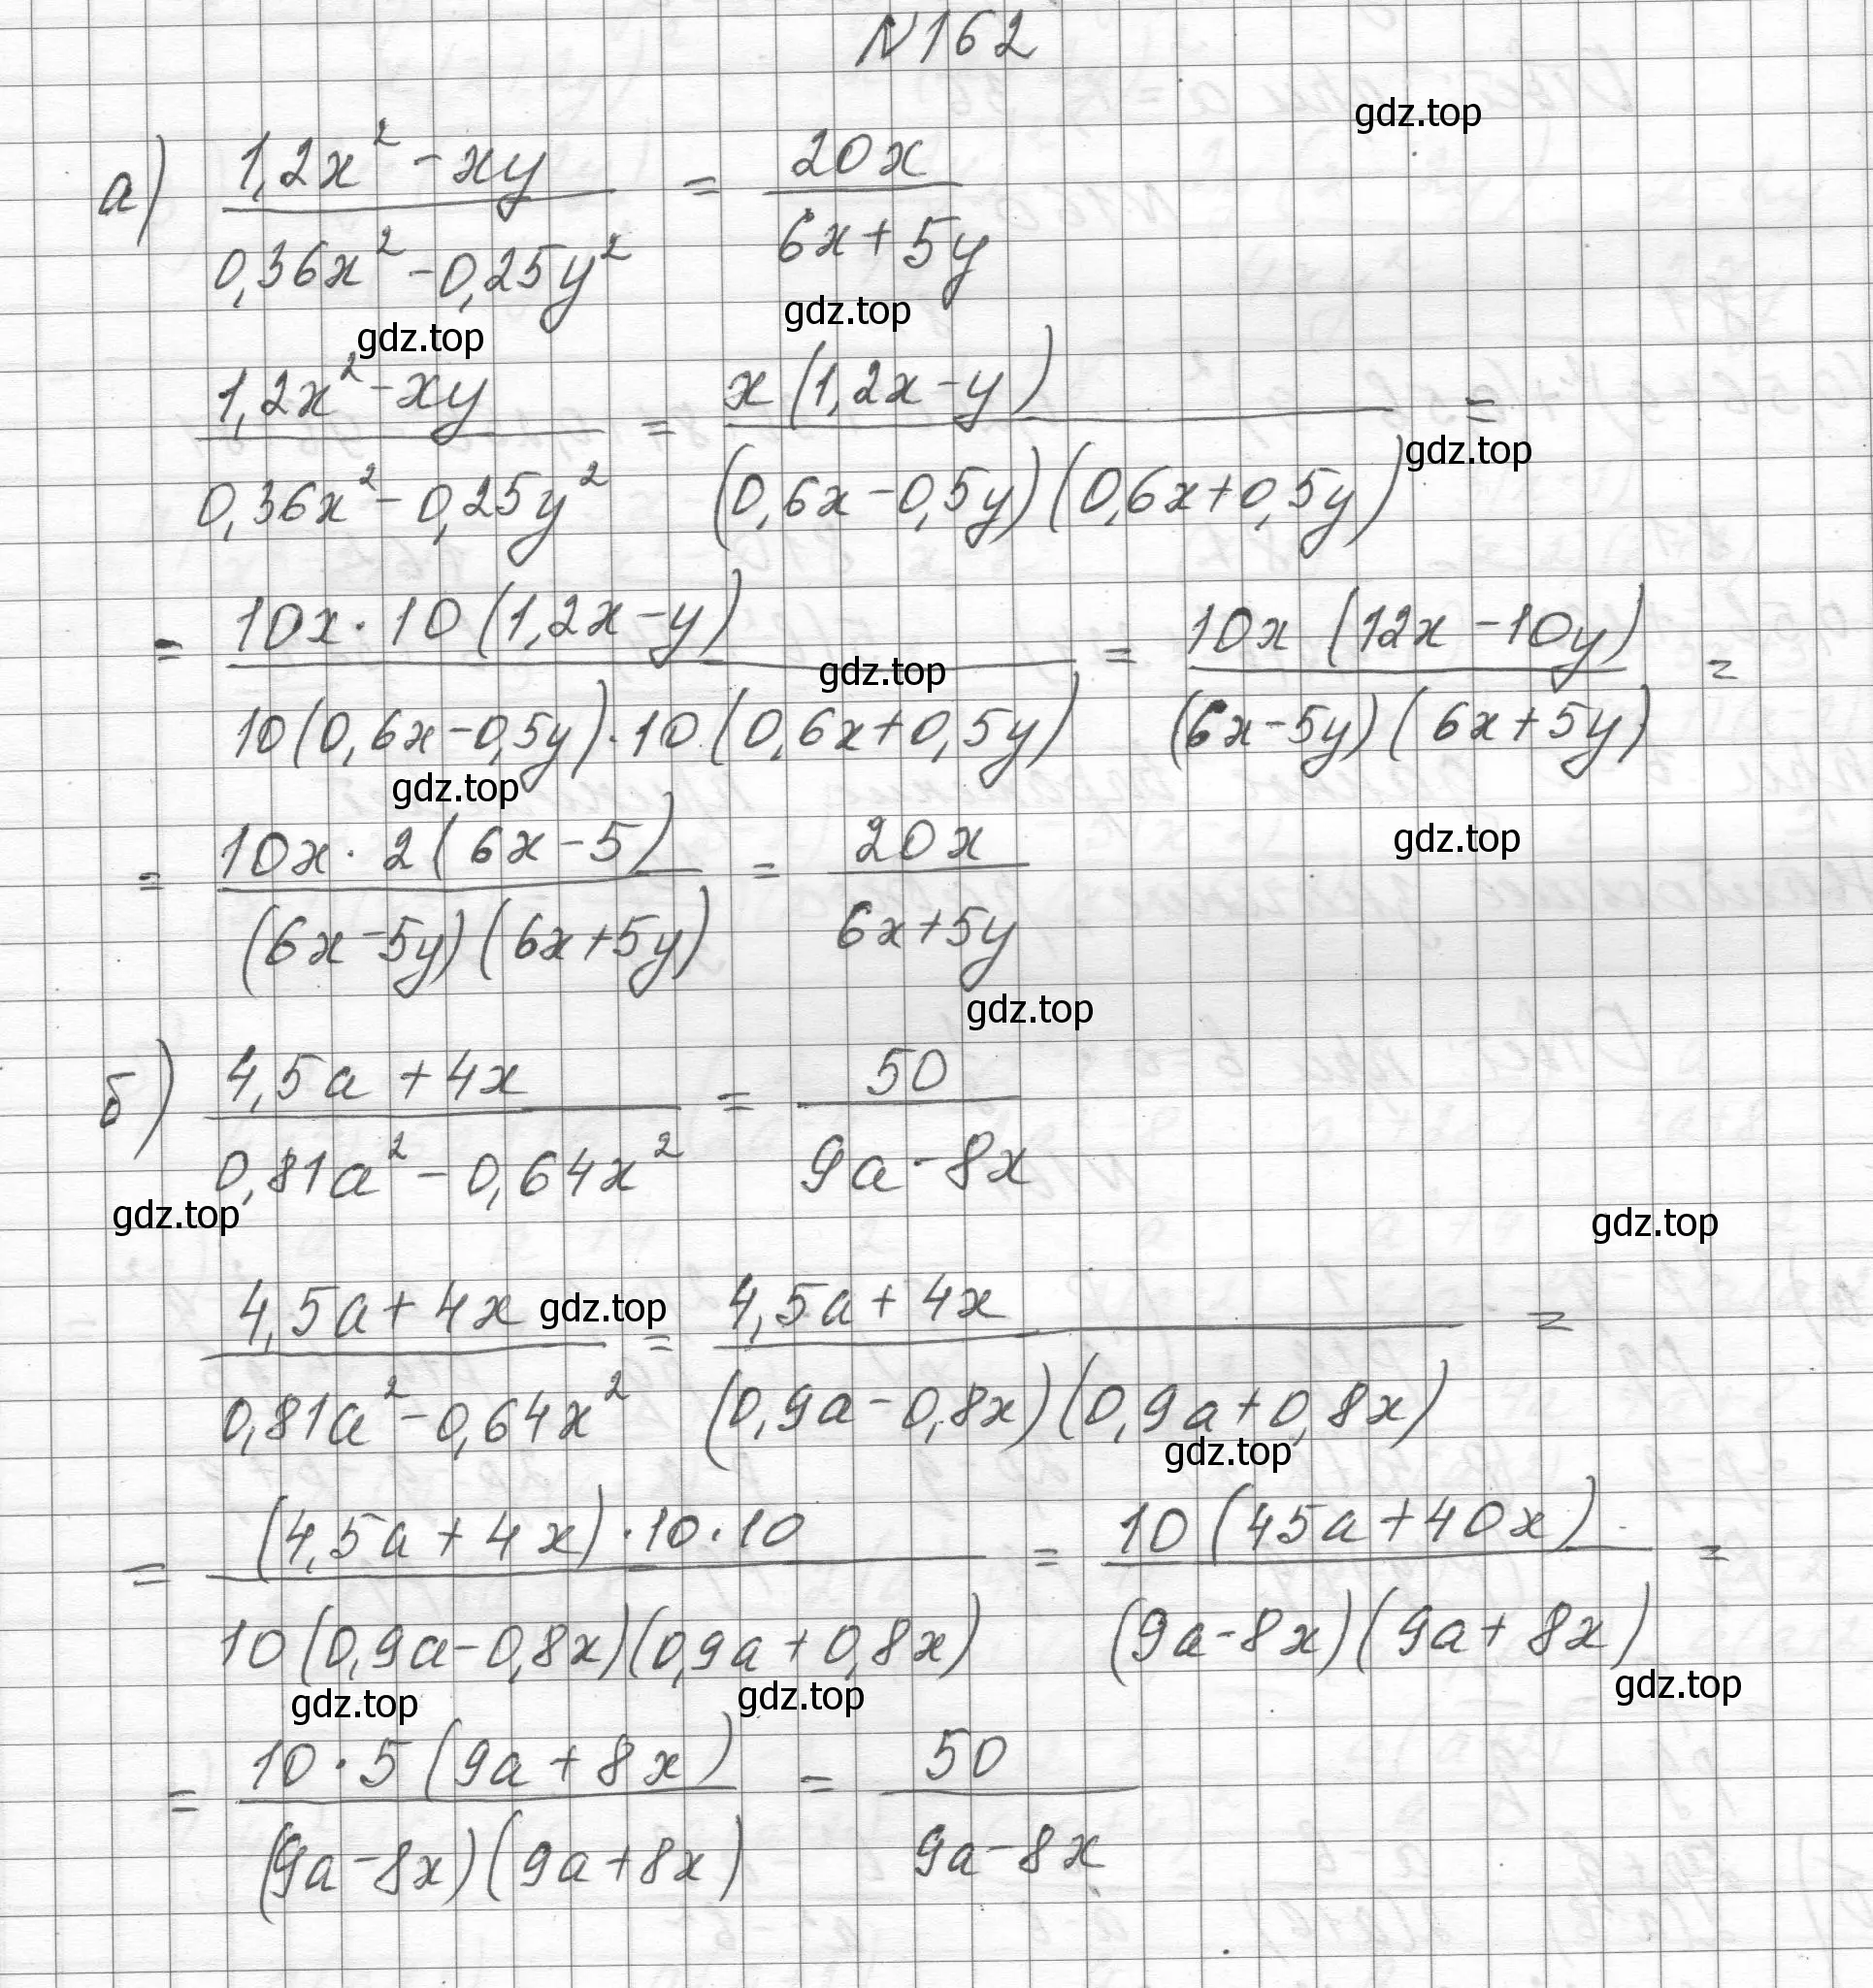 N162
gdz.top
а) (1,2x² - xy)/(0,36x² - 0,25y²) = 20x/(6x + 5y)
gdz.top gdz.top
(1,2x² - xy)/(0,36x² - 0,25y²) = x(1,2x - y)/((0,6x - 0,5y)(0,6x + 0,5y)) =
gdz.top
= 10x · 10(1,2x - y)/(10(0,6x - 0,5y) · 10(0,6x + 0,5y)) = 10x(12x - 10y)/((6x - 5y)(6x + 5y)) =
gdz.top
gdz.top gdz.top
= 10x · 2(6x - 5)/((6x - 5y)(6x + 5y)) = 20x/(6x + 5y)
gdz.top
б) (4,5a + 4x)/(0,81a² - 0,64x²) = 50/(9a - 8x)
gdz.top gdz.top
(4,5a + 4x)/(0,81a² - 0,64x²) = (4,5a + 4x)/((0,9a - 0,8x)(0,9a + 0,8x)) =
gdz.top
gdz.top
= (4,5a + 4x) · 10 · 10/(10(0,9a - 0,8x)(0,9a + 0,8x)) = 10(45a + 40x)/((9a - 8x)(9a + 8x)) =
gdz.top gdz.top gdz.top
= 10 · 5(9a + 8x)/((9a - 8x)(9a + 8x)) = 50/(9a - 8x)